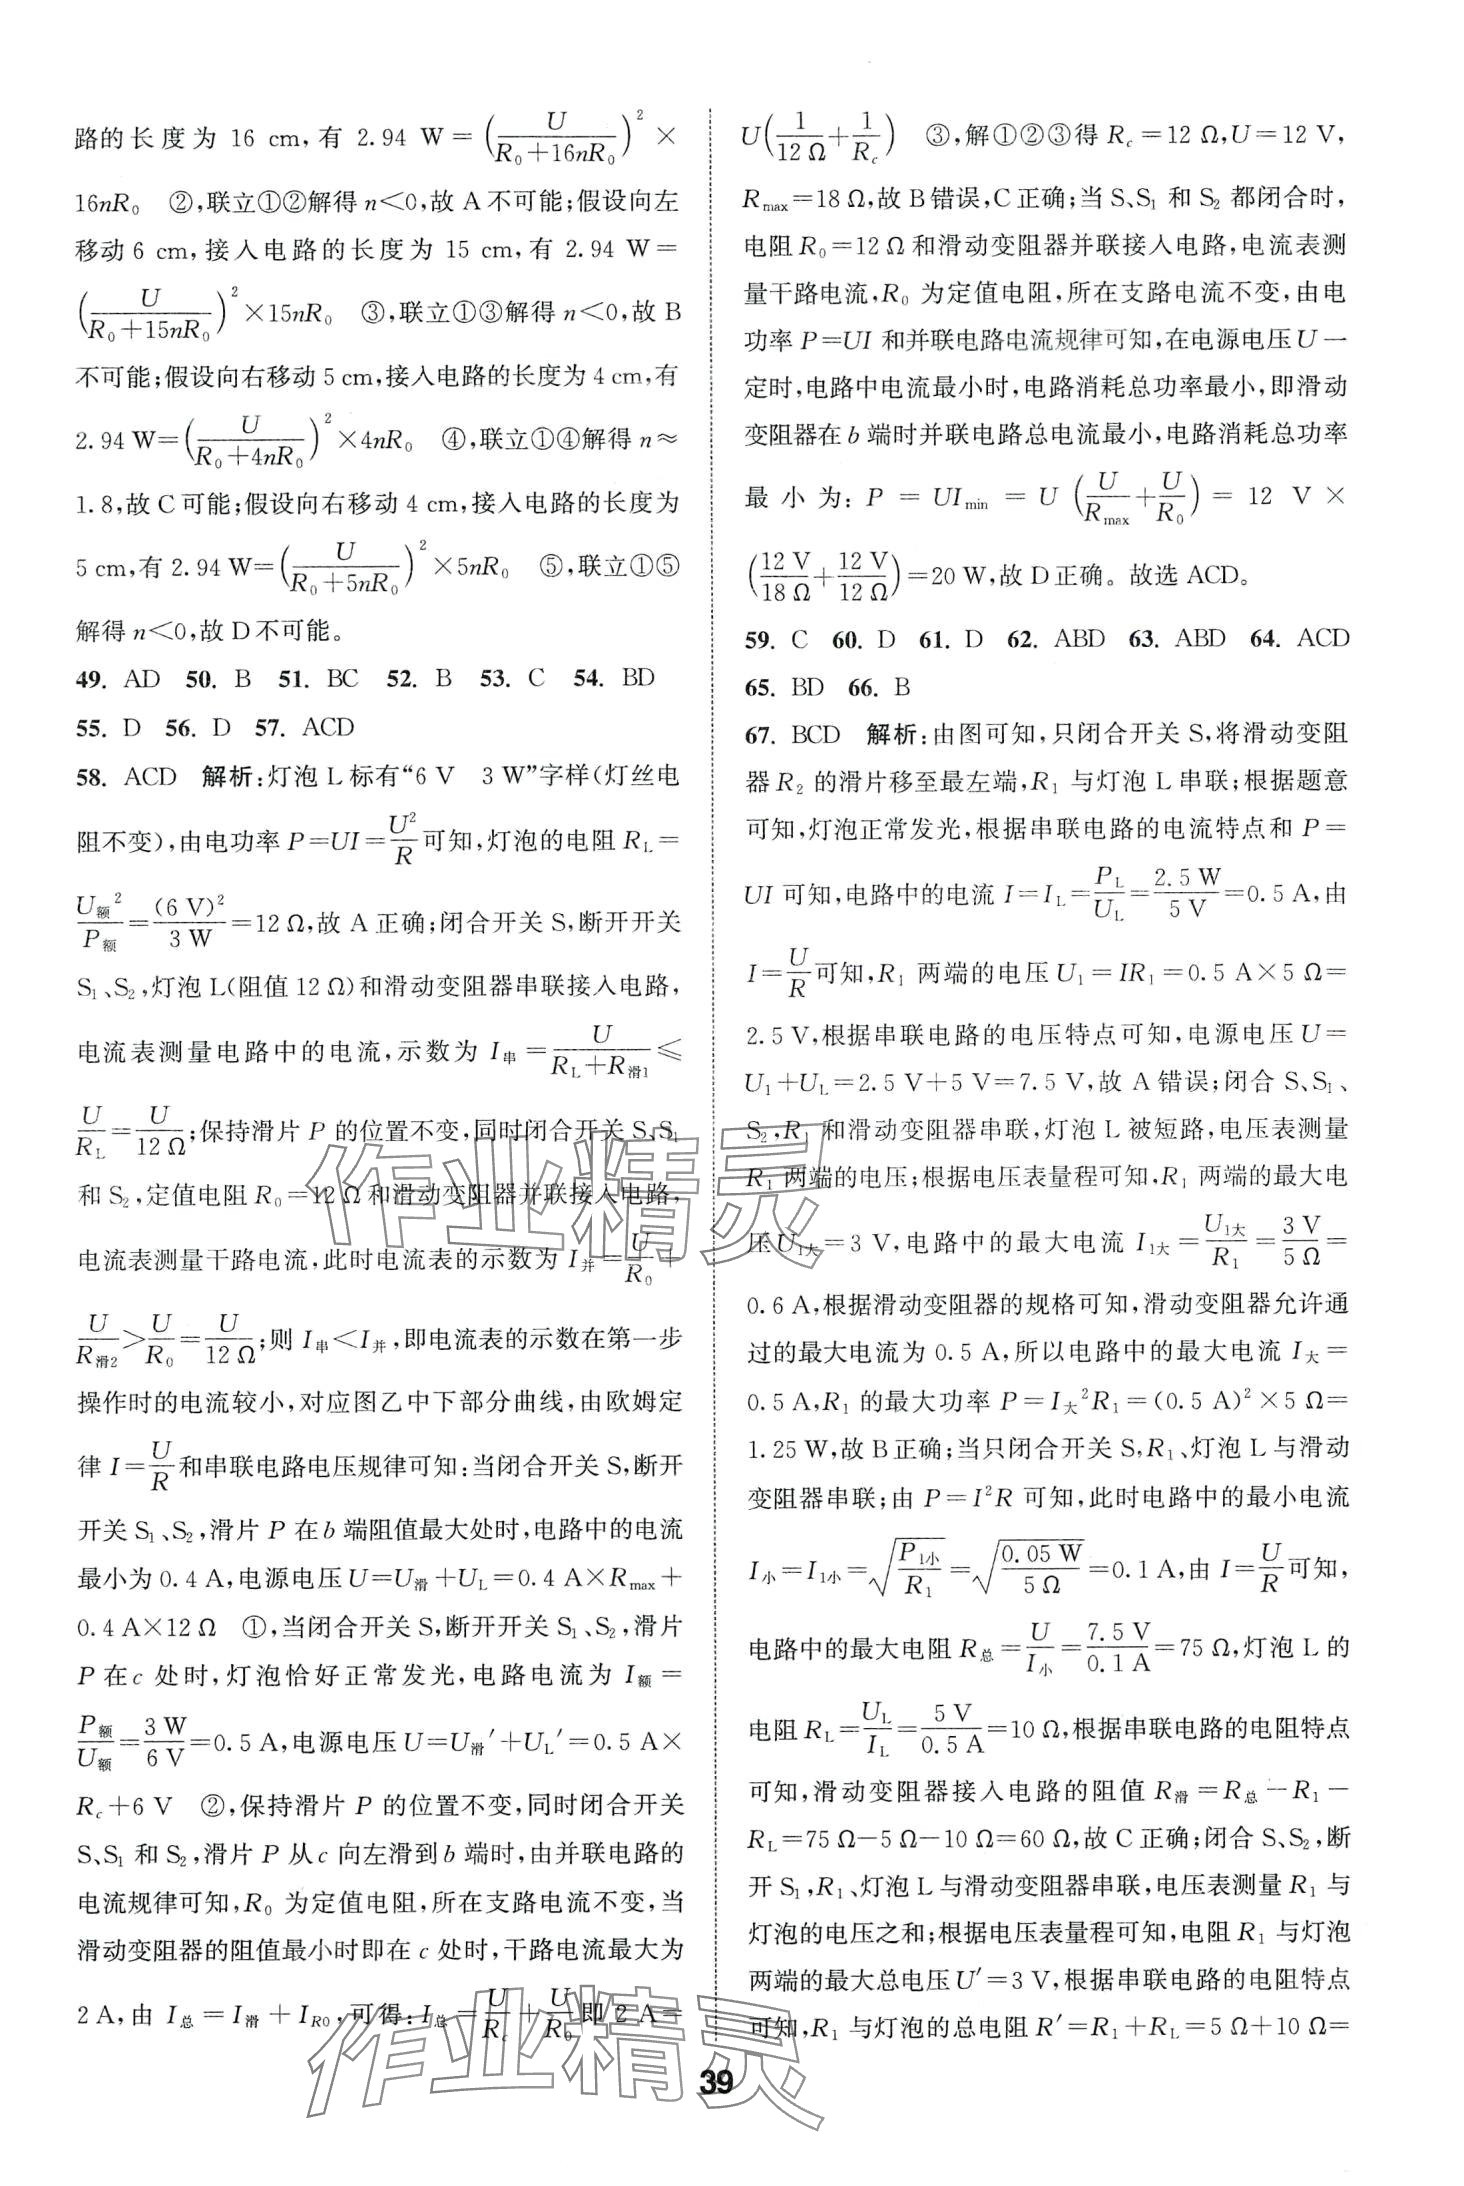 路的长度为 16 cm,有 2.94 W=(U/(R₀+16nR₀))²×
16nR₀ ②,联立①②解得 n<0,故 A 不可能;假设向左
移动 6 cm,接入电路的长度为 15 cm,有 2.94 W=
(U/(R₀+15nR₀))²×15nR₀ ③,联立①③解得 n<0,故 B
不可能;假设向右移动 5 cm,接入电路的长度为 4 cm,有
2.94 W=(U/(R₀+4nR₀))²×4nR₀ ④,联立①④解得 n≈
1.8,故 C 可能;假设向右移动 4 cm,接入电路的长度为
5 cm,有 2.94 W=(U/(R₀+5nR₀))²×5nR₀ ⑤,联立①⑤
解得 n<0,故 D 不可能。
49. AD 50. B 51. BC 52. B 53. C 54. BD
55. D 56. D 57. ACD
58. ACD 解析:灯泡 L 标有“6 V 3 W”字样(灯丝电
阻不变),由电功率 P=UI=U²/R可知,灯泡的电阻 R_L=
U额²/P额=(6 V)²/3 W=12 Ω,故 A 正确;闭合开关 S,断开开关
S₁、S₂,灯泡 L(阻值 12 Ω)和滑动变阻器串联接入电路,
电流表测量电路中的电流,示数为 I串=U/(R_L+R滑1)≤
U/R_L=U/12 Ω;保持滑片 P 的位置不变,同时闭合开关 S、S₁
和 S₂,定值电阻 R₀=12 Ω 和滑动变阻器并联接入电路,
电流表测量干路电流,此时电流表的示数为 I并=U/R₀+
U/R滑2>U/R₀=U/12 Ω;则 I串<I并,即电流表的示数在第一步
操作时的电流较小,对应图乙中下部分曲线,由欧姆定
律 I=U/R和串联电路电压规律可知:当闭合开关 S,断开
开关 S₁、S₂,滑片 P 在 b 端阻值最大处时,电路中的电流
最小为 0.4 A,电源电压 U=U滑+U_L=0.4 A×R_max+
0.4 A×12 Ω ①,当闭合开关 S,断开开关 S₁、S₂,滑片
P 在 c 处时,灯泡恰好正常发光,电路电流为 I额=
P额/U额=3 W/6 V=0.5 A,电源电压 U=U滑′+U_L′=0.5 A×
R_c+6 V ②,保持滑片 P 的位置不变,同时闭合开关
S、S₁ 和 S₂,滑片 P 从 c 向左滑到 b 端时,由并联电路的
电流规律可知,R₀ 为定值电阻,所在支路电流不变,当
滑动变阻器的阻值最小时即在 c 处时,干路电流最大为
2 A,由 I总=I滑+I_R0,可得:I总=U/R_c+U/R₀即 2 A=
U(1/12 Ω+1/R_c) ③,解①②③得 R_c=12 Ω,U=12 V,
R_max=18 Ω,故 B 错误,C 正确;当 S、S₁ 和 S₂ 都闭合时,
电阻 R₀=12 Ω 和滑动变阻器并联接入电路,电流表测
量干路电流,R₀ 为定值电阻,所在支路电流不变,由电
功率 P=UI 和并联电路电流规律可知,在电源电压 U 一
定时,电路中电流最小时,电路消耗总功率最小,即滑动
变阻器在 b 端时并联电路总电流最小,电路消耗总功率
最小为:P=UI_min=U(U/R_max+U/R₀)=12 V×
(12 V/18 Ω+12 V/12 Ω)=20 W,故 D 正确。故选 ACD。
59. C 60. D 61. D 62. ABD 63. ABD 64. ACD
65. BD 66. B
67. BCD 解析:由图可知,只闭合开关 S,将滑动变阻
器 R₂ 的滑片移至最左端,R₁ 与灯泡 L 串联;根据题意
可知,灯泡正常发光,根据串联电路的电流特点和 P=
UI 可知,电路中的电流 I=I_L=P_L/U_L=2.5 W/5 V=0.5 A,由
I=U/R可知,R₁ 两端的电压 U₁=IR₁=0.5 A×5 Ω=
2.5 V,根据串联电路的电压特点可知,电源电压 U=
U₁+U_L=2.5 V+5 V=7.5 V,故 A 错误;闭合 S、S₁、
S₂,R₁ 和滑动变阻器串联,灯泡 L 被短路,电压表测量
R₁ 两端的电压;根据电压表量程可知,R₁ 两端的最大电
压 U₁大=3 V,电路中的最大电流 I₁大=U₁大/R₁=3 V/5 Ω=
0.6 A,根据滑动变阻器的规格可知,滑动变阻器允许通
过的最大电流为 0.5 A,所以电路中的最大电流 I大=
0.5 A,R₁ 的最大功率 P=I大²R₁=(0.5 A)²×5 Ω=
1.25 W,故 B 正确;当只闭合开关 S,R₁、灯泡 L 与滑动
变阻器串联;由 P=I²R 可知,此时电路中的最小电流
I小=I₁小=√(P₁小/R₁)=√(0.05 W/5 Ω)=0.1 A,由 I=U/R可知,
电路中的最大电阻 R总=U/I小=7.5 V/0.1 A=75 Ω,灯泡 L 的
电阻 R_L=U_L/I_L=5 V/0.5 A=10 Ω,根据串联电路的电阻特点
可知,滑动变阻器接入电路的阻值 R滑=R总-R₁-
R_L=75 Ω-5 Ω-10 Ω=60 Ω,故 C 正确;闭合 S、S₂,断
开 S₁,R₁、灯泡 L 与滑动变阻器串联,电压表测量 R₁ 与
灯泡的电压之和;根据电压表量程可知,电阻 R₁ 与灯泡
两端的最大总电压 U′=3 V,根据串联电路的电阻特点
可知,R₁ 与灯泡的总电阻 R′=R₁+R_L=5 Ω+10 Ω=
39
作业精灵
作业精灵